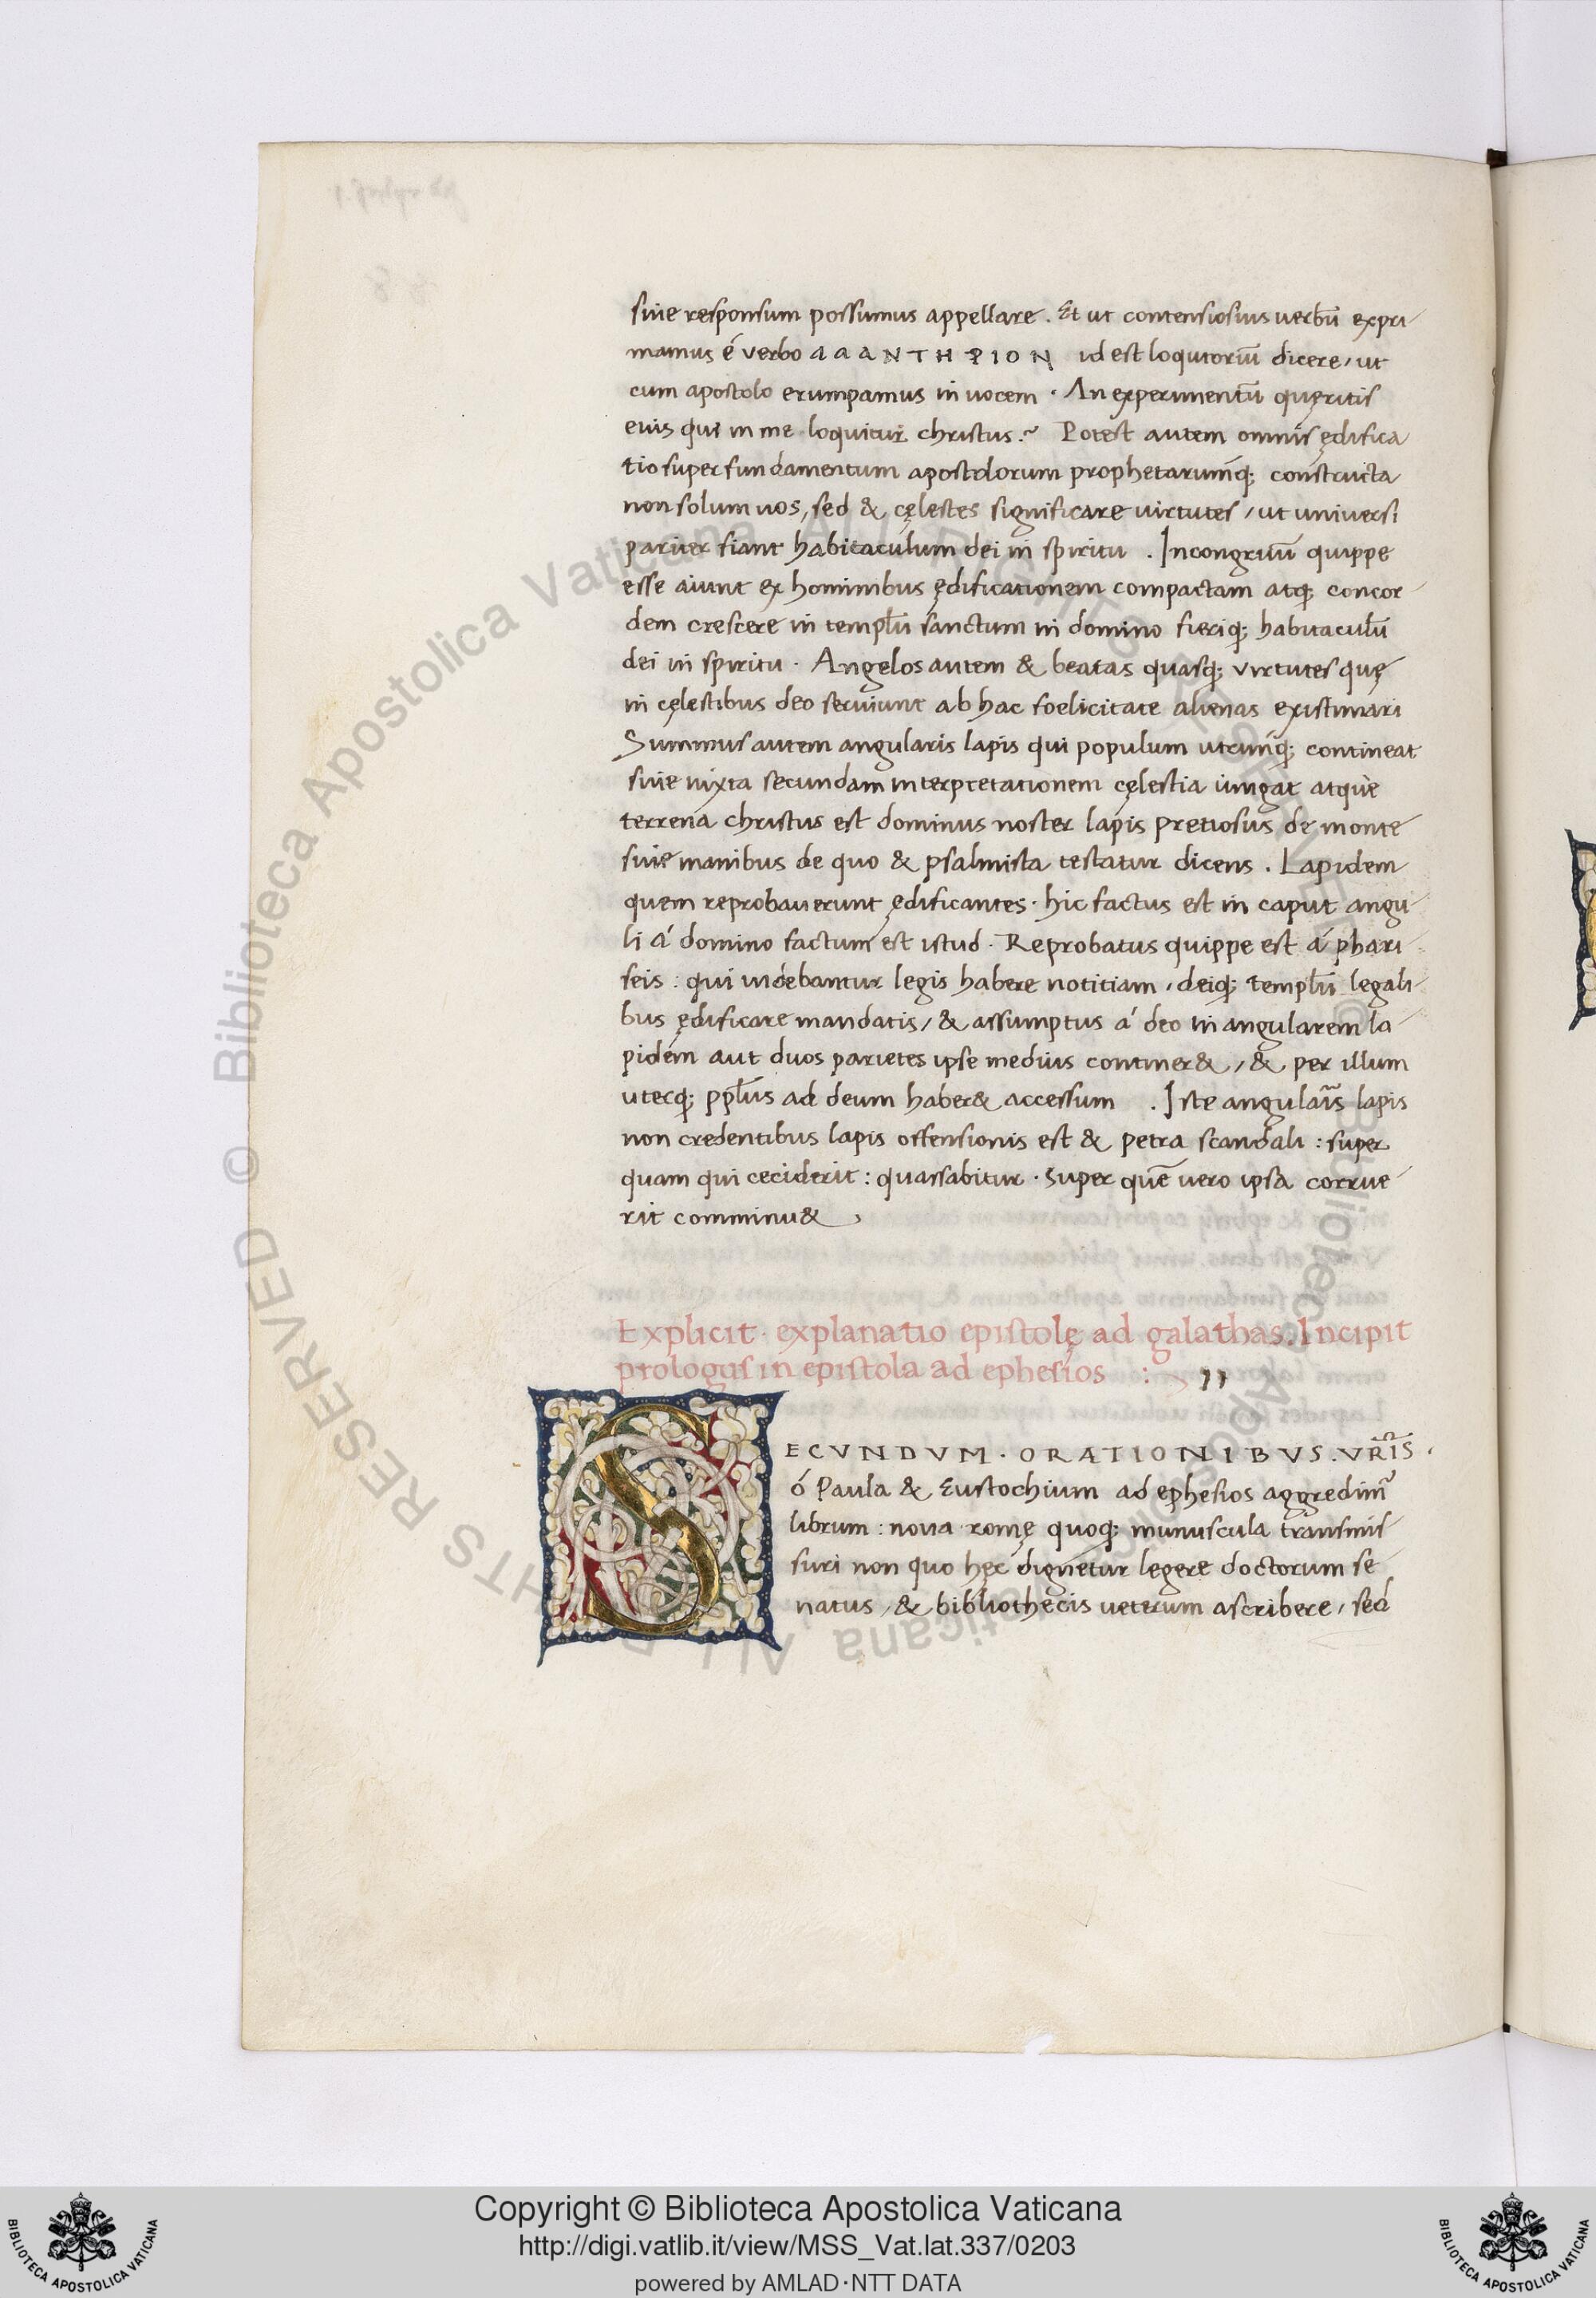 siue responsum possumus appellare. Et ut contensiosius uerbũ expri-
mamus é verbo ΔΑΔΝΤΗΡΙΟΝ id est loqutoriũ dicere, ut
cum apostolo erumpamus in uocem. An experimentũ quęritis
eius qui in me loquitur christus.~ Potest autem omnis ędifica
tio super fundamentum apostolorum prophetarumq; constructa
non solum uos, sed & cęlestes significare virtutes, ut universi
pariter fiant habitaculum dei in spiritu. Incongruũ quippe
esse aiunt ex hominibus ędificationem compactam atq; concor-
dem crescere in templũ sanctum in domino fieriq; habitaculũ
dei in spiritu. Angelos autem & beatas quasq; virtutes quę
in cęlestibus deo seruiunt ab hac foelicitate alienas existimari
Summus autem angularis lapis qui populum utrunq; contineat
siue iuxta secundam interpretationem cęlestia iungat atque
terrena christus est dominus noster lapis pretiosus de monte
siue manibus de quo & psalmista testatur dicens. Lapidem
quem reprobauerunt ędificantes. hic factus est in caput angu-
li á domino factum est istud. Reprobatus quippe est á phari-
seis: qui uidebantur legis habere notitiam, deiq; templũ legali-
bus ędificare mandatis, & assumptus á deo in angularem la-
pidem aut duos parietes ipse medius continer&, & per illum
uterq; pp̃lus ad deum haber& accessum. Iste angularis lapis
non credentibus lapis offensionis est & petra scandali: super
quam qui ceciderit: quassabitur. Super quẽ uero ipsa corrue-
rit comminu&,
Explicit. explanatio epistolę ad galathas. Incipit
prologus in epistola ad ephesios :~ 11
SECVNDVM. ORATIONIBVS. VR̃IS.
ó Paula & Eustochium ad ephesios aggredim̃
librum: noua romę quoq; munuscula transmis-
suri non quo hęc dignetur legere doctorum se-
natus, & bibliothecis ueterum ascribere, sed
© Biblioteca Apostolica Vaticana ALL RIGHTS RESERVED
© Biblioteca Apostolica Vaticana ALL RIGHTS RESERVED
Copyright © Biblioteca Apostolica Vaticana
http://digi.vatlib.it/view/MSS_Vat.lat.337/0203
powered by AMLAD·NTT DATA
BIBLIOTECA APOSTOLICA VATICANA
BIBLIOTECA APOSTOLICA VATICANA